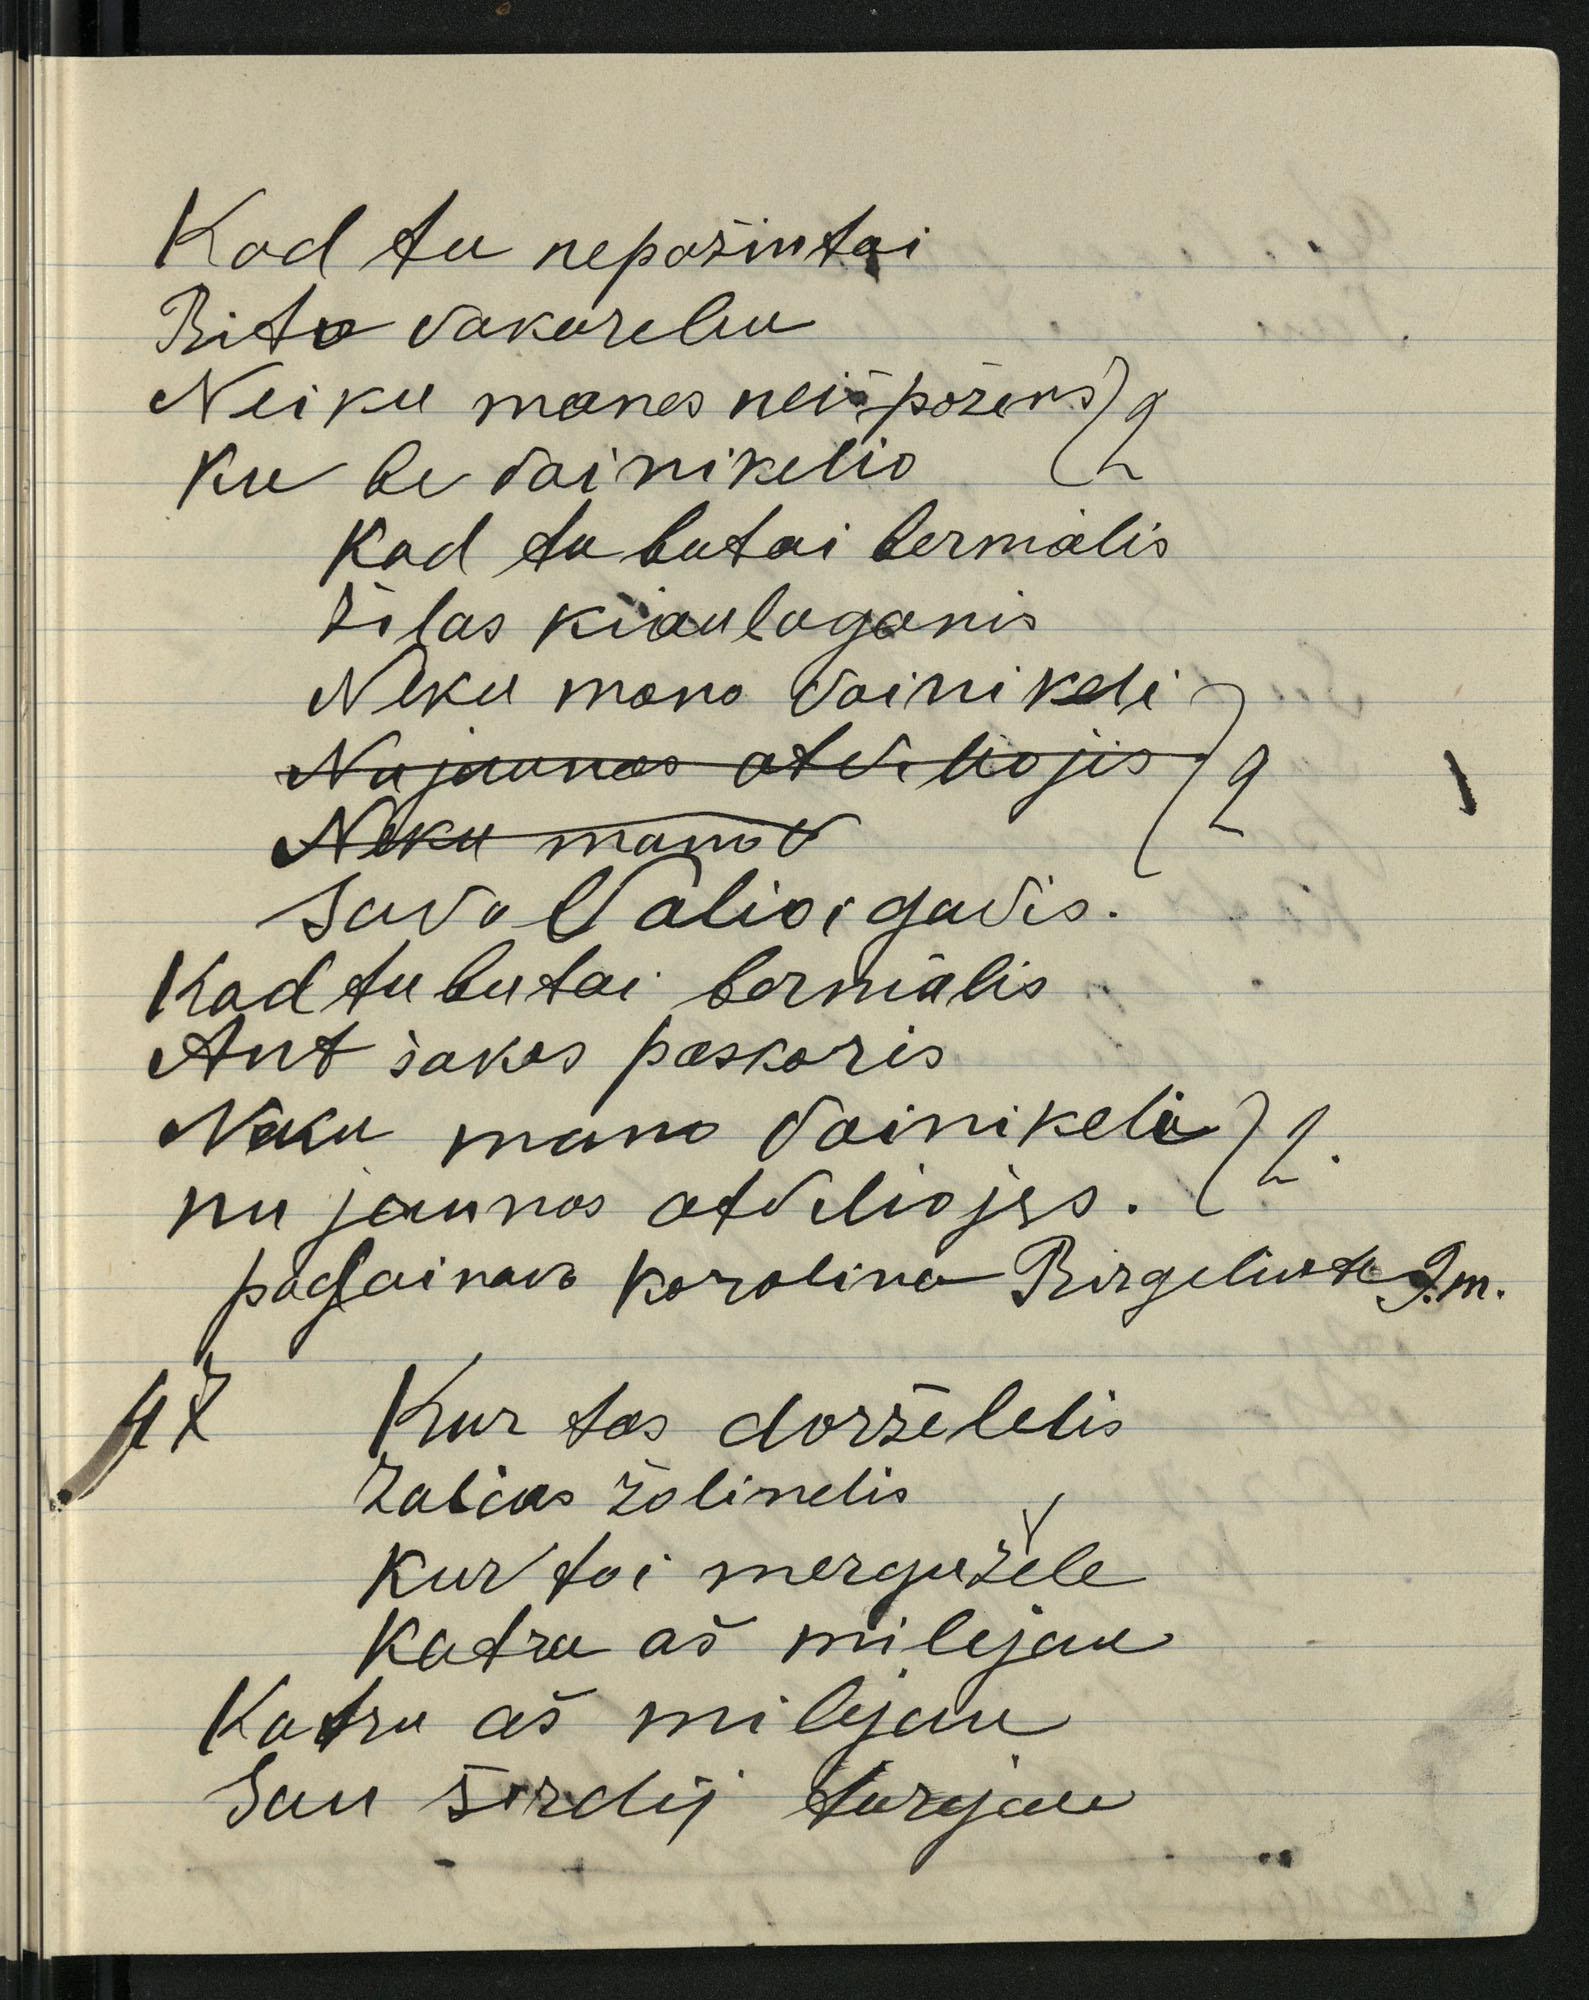 Kad tu nepažintai
Bito vakarelu
Neiku manes neišpažens } 2
Ku be vainikelio
Kad tu butai bernialis
Žilas kiaulaganis
Neku mano vainikeli } 2
Nujaunos atveliojis
Neku mano v
Savo Valioi gavis.
Kad tu butai bernialis
Ant šakos paskaris
Neku mano vainikelio } 2.
nu jaunos atveliojes.
padainavo karolina Birgeliute 9.m.
47 Kur tas darželelis
Žalias žolinelis
Kur toi mergužele
Katra aš milejau
Katru aš milejau
Sau širdij turejau